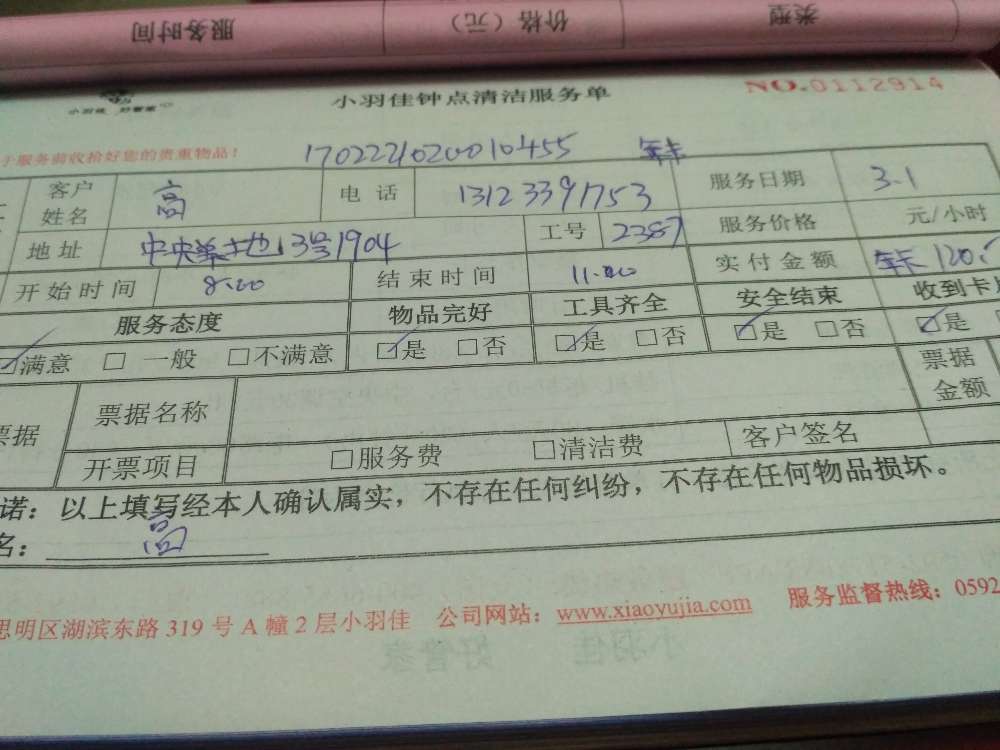 服务时间 价格（元） 类型
小羽佳 好管家
小羽佳钟点清洁服务单 NO.0112914
于服务前收拾好您的贵重物品！ 170222102001045 5 年卡
客户姓名 高 电话 13123391753 服务日期 3.1
地址 中央美地13号1904 工号 2387 服务价格 元/小时
开始时间 8:00 结束时间 11:00 实付金额 年卡 120.
服务态度 物品完好 工具齐全 安全结束 收到卡
☑满意 □一般 □不满意 ☑是 □否 ☑是 □否 ☑是 □否 ☑是
票据 票据名称 票据金额
开票项目 □服务费 □清洁费 客户签名
诺：以上填写经本人确认属实，不存在任何纠纷，不存在任何物品损坏。
名：高
思明区湖滨东路 319 号 A 幢 2 层小羽佳 公司网站：www.xiaoyujia.com 服务监督热线：0592